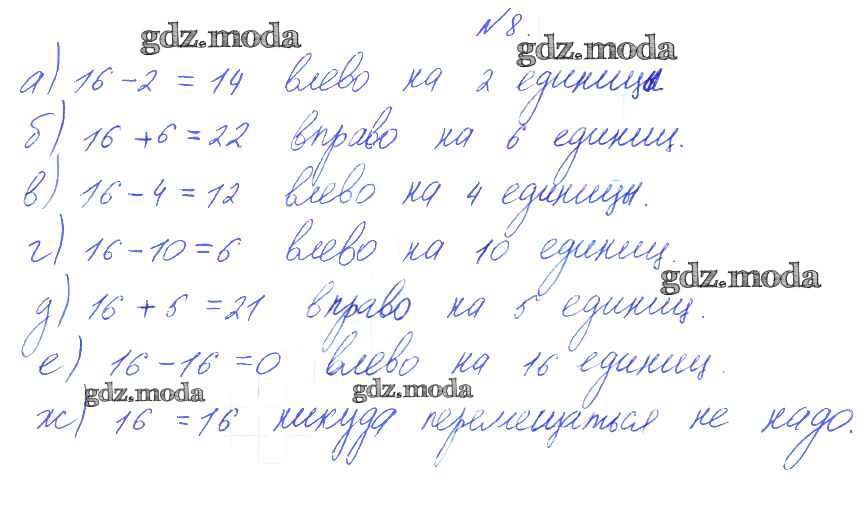 №8.
gdz.moda
gdz.moda
а) 16 - 2 = 14 влево на 2 единицы
б) 16 + 6 = 22 вправо на 6 единиц.
в) 16 - 4 = 12 влево на 4 единицы.
г) 16 - 10 = 6 влево на 10 единиц.
gdz.moda
д) 16 + 5 = 21 вправо на 5 единиц.
е) 16 - 16 = 0 влево на 16 единиц.
gdz.moda
gdz.moda
ж) 16 = 16 никуда перемещаться не надо.